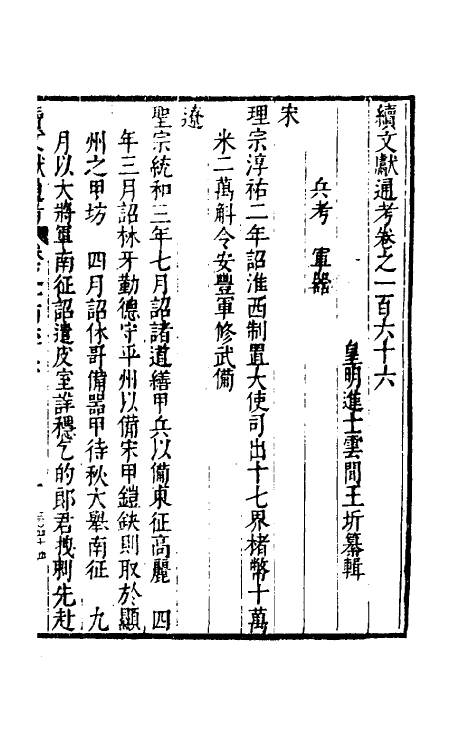 續文獻通考卷之一百六十六
皇明進士雲間王圻纂輯
兵考　軍器
宋
理宗淳祐二年詔淮西制置大使司出十七界楮幣十萬
米二萬斛令安豐軍修武備
遼
聖宗統和三年七月詔諸道繕甲兵以備東征高麗　四
年三月詔林牙勤德守平州以備宋甲鎧缺則取於顯
州之甲坊　四月詔休哥備器甲待秋大舉南征　九
月以大將軍南征詔遣皮室詳穩乞的郎君拽剌先赴